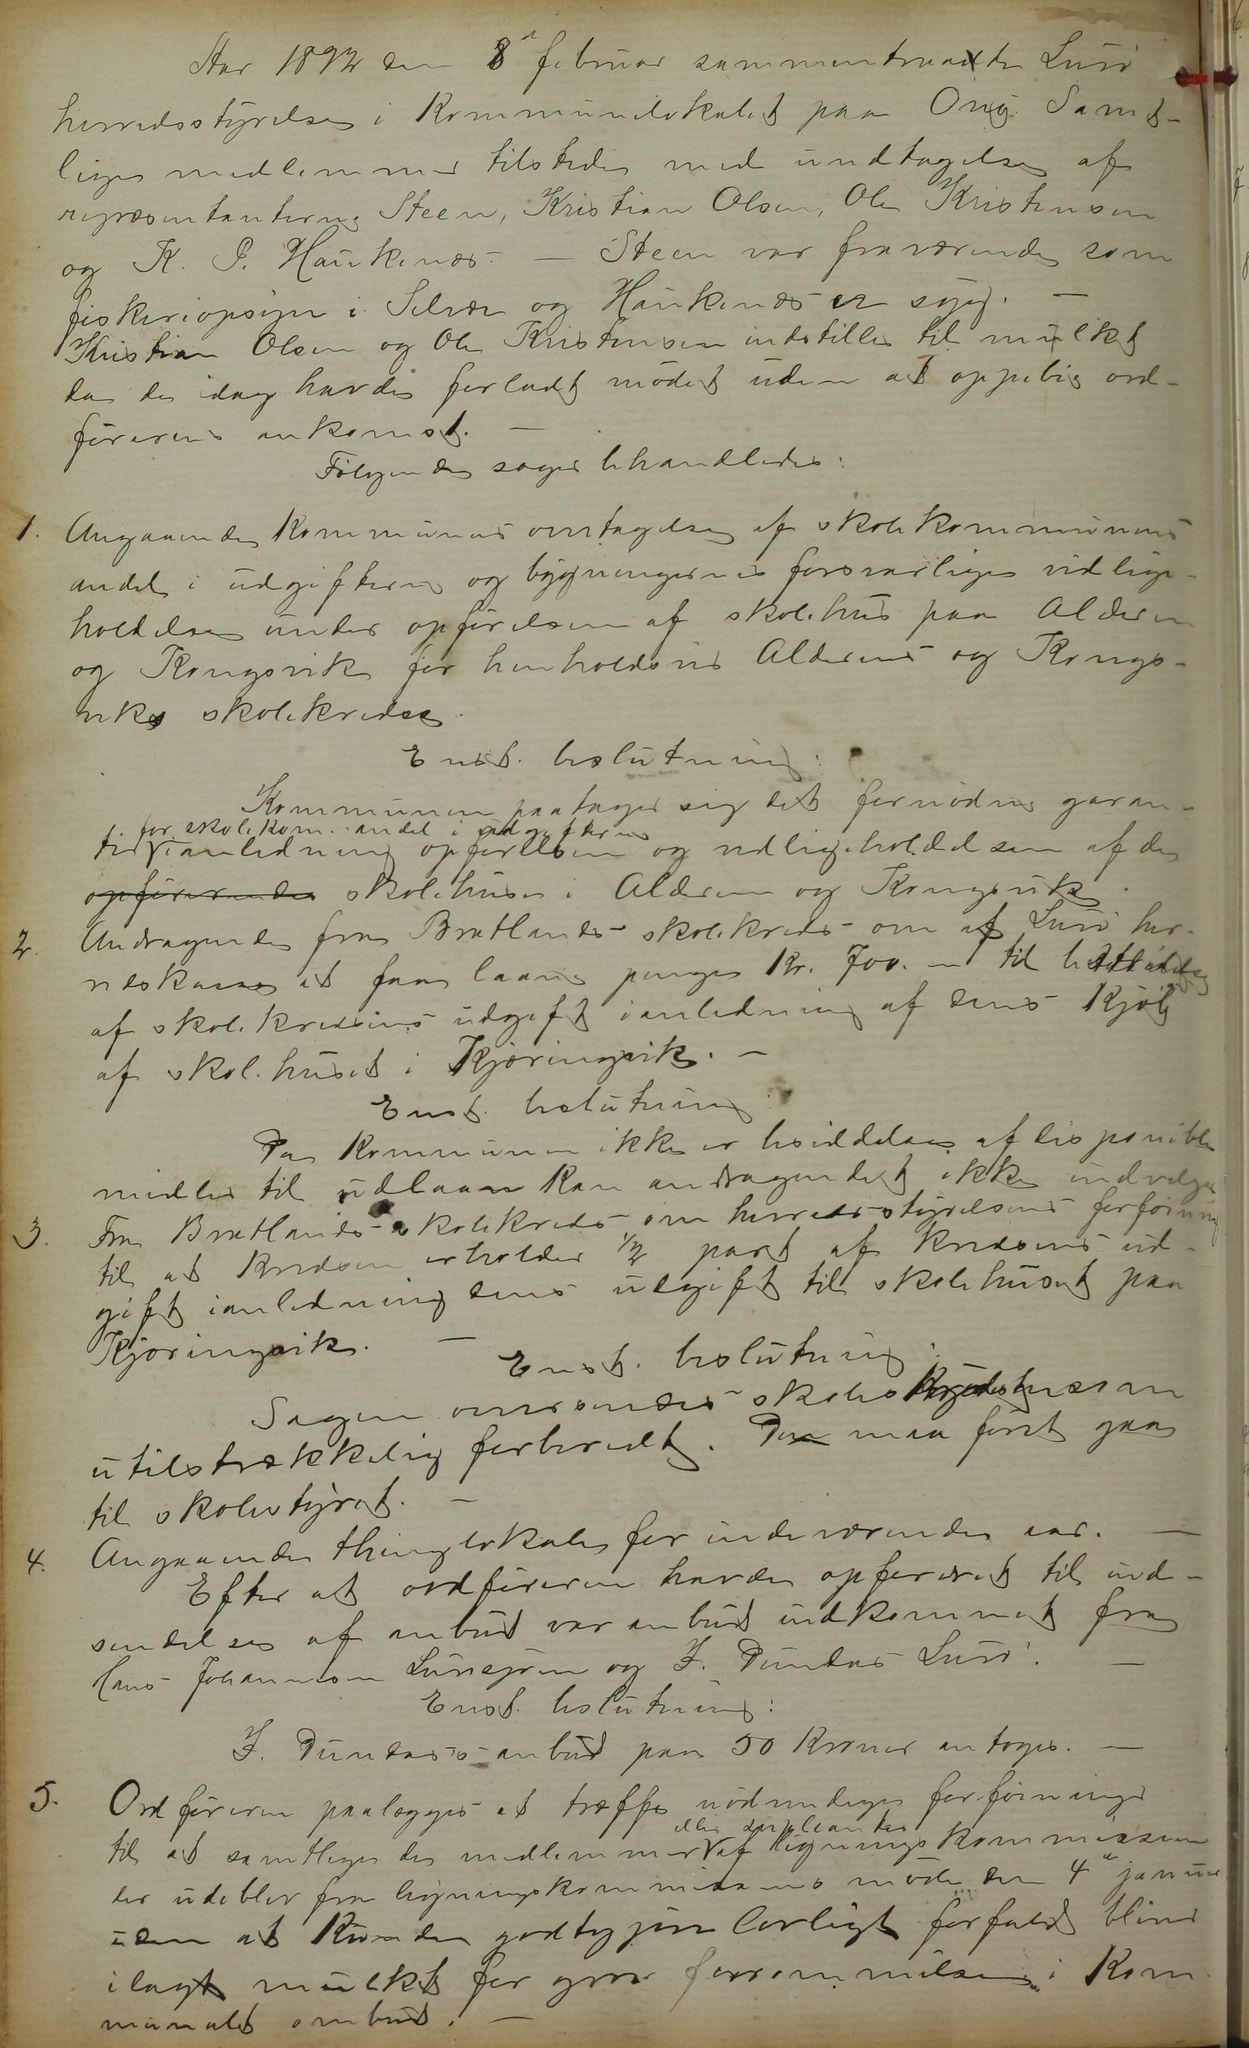 Aar 1892 den 8de februar sammentraadte Lurø
herredsstyrelse i Kommunelokalet paa Onø. Samt-
lige medlemmer tilstede med undtagelse af
repræsentanterne Steen, Kristian Olsen, Ole Kristensen
og K. P. Haukenæs. — Steen var fraværende som
fiskeriopsyn i Selvær og Haukenæs er syg. —
Kristian Olsen og Ole Kristensen indstilles til mulkt
da de idag havde forladt mødet uden at oppebie ord-
førerens ankomst. —
Følgende sager behandledes:
1. Angaaende Kommunens overtagelse af skolekommunens
andel i udgifterne og bygningernes forsvarlige vedlige-
holdelse under opførelsen af skolehus paa Alderen
og Kongsvik for henholdsvis Alderens og Kongs-
viks skolekredse.
Enst. beslutning:
Kommunen paatager sig det fornødne garan-
for skolekom. andel i udgifterne
ti i anledning opførelsen og vedligeholdelsen af de
opførerende skolehuse i Alderen og Kongsvik.
2. Andragende fra Bratlands skolekreds om af Lurø her-
redskasse at faa laane penge Kr. 700. — til
af skolekredsens udgift i anledning af dens Kjøb
af skolehuset i Kjæringvik. —
Enst. beslutning:
Da Kommunen ikke er besiddelse af disponible
midler til udlaan kan andragendet ikke indvilges
3. Fra Bratlands skolekreds om herredsstyrelsens forføining
til at Kredsen erholder 1/2 part af Kredsens ud-
gift i anledning dens udgift til skolehuset paa
Kjæringvik. —
Enst. beslutning:
Sagen ansendes skoles som
utilstrækkelig forberedt. Den maa først gaa
til skolestyret. —
4. Angaaende thinglokale for indeværende aar. —
Efter at ordføreren havde opfordret til ind-
sendelse af anbud var anbud indkommet fra
Hans Johannesen Lurøgaren og Z. Dundas Lurø. —
Enst. beslutning:
Z. Dundas's anbud paa 50 Kroner antages. —
5. Ordføreren paalægges at træffe nødvendige forføininger
eller suppleanter
til at samtlige de medlemmer af ligningskommissionen
der udeblev fra ligningskommissionens møde den 4de januar
uden at Kunde godtgjøre lovligt forfald blive
ilagt mulkt for grov forsømmelse i Kom-
munalt ombud. —